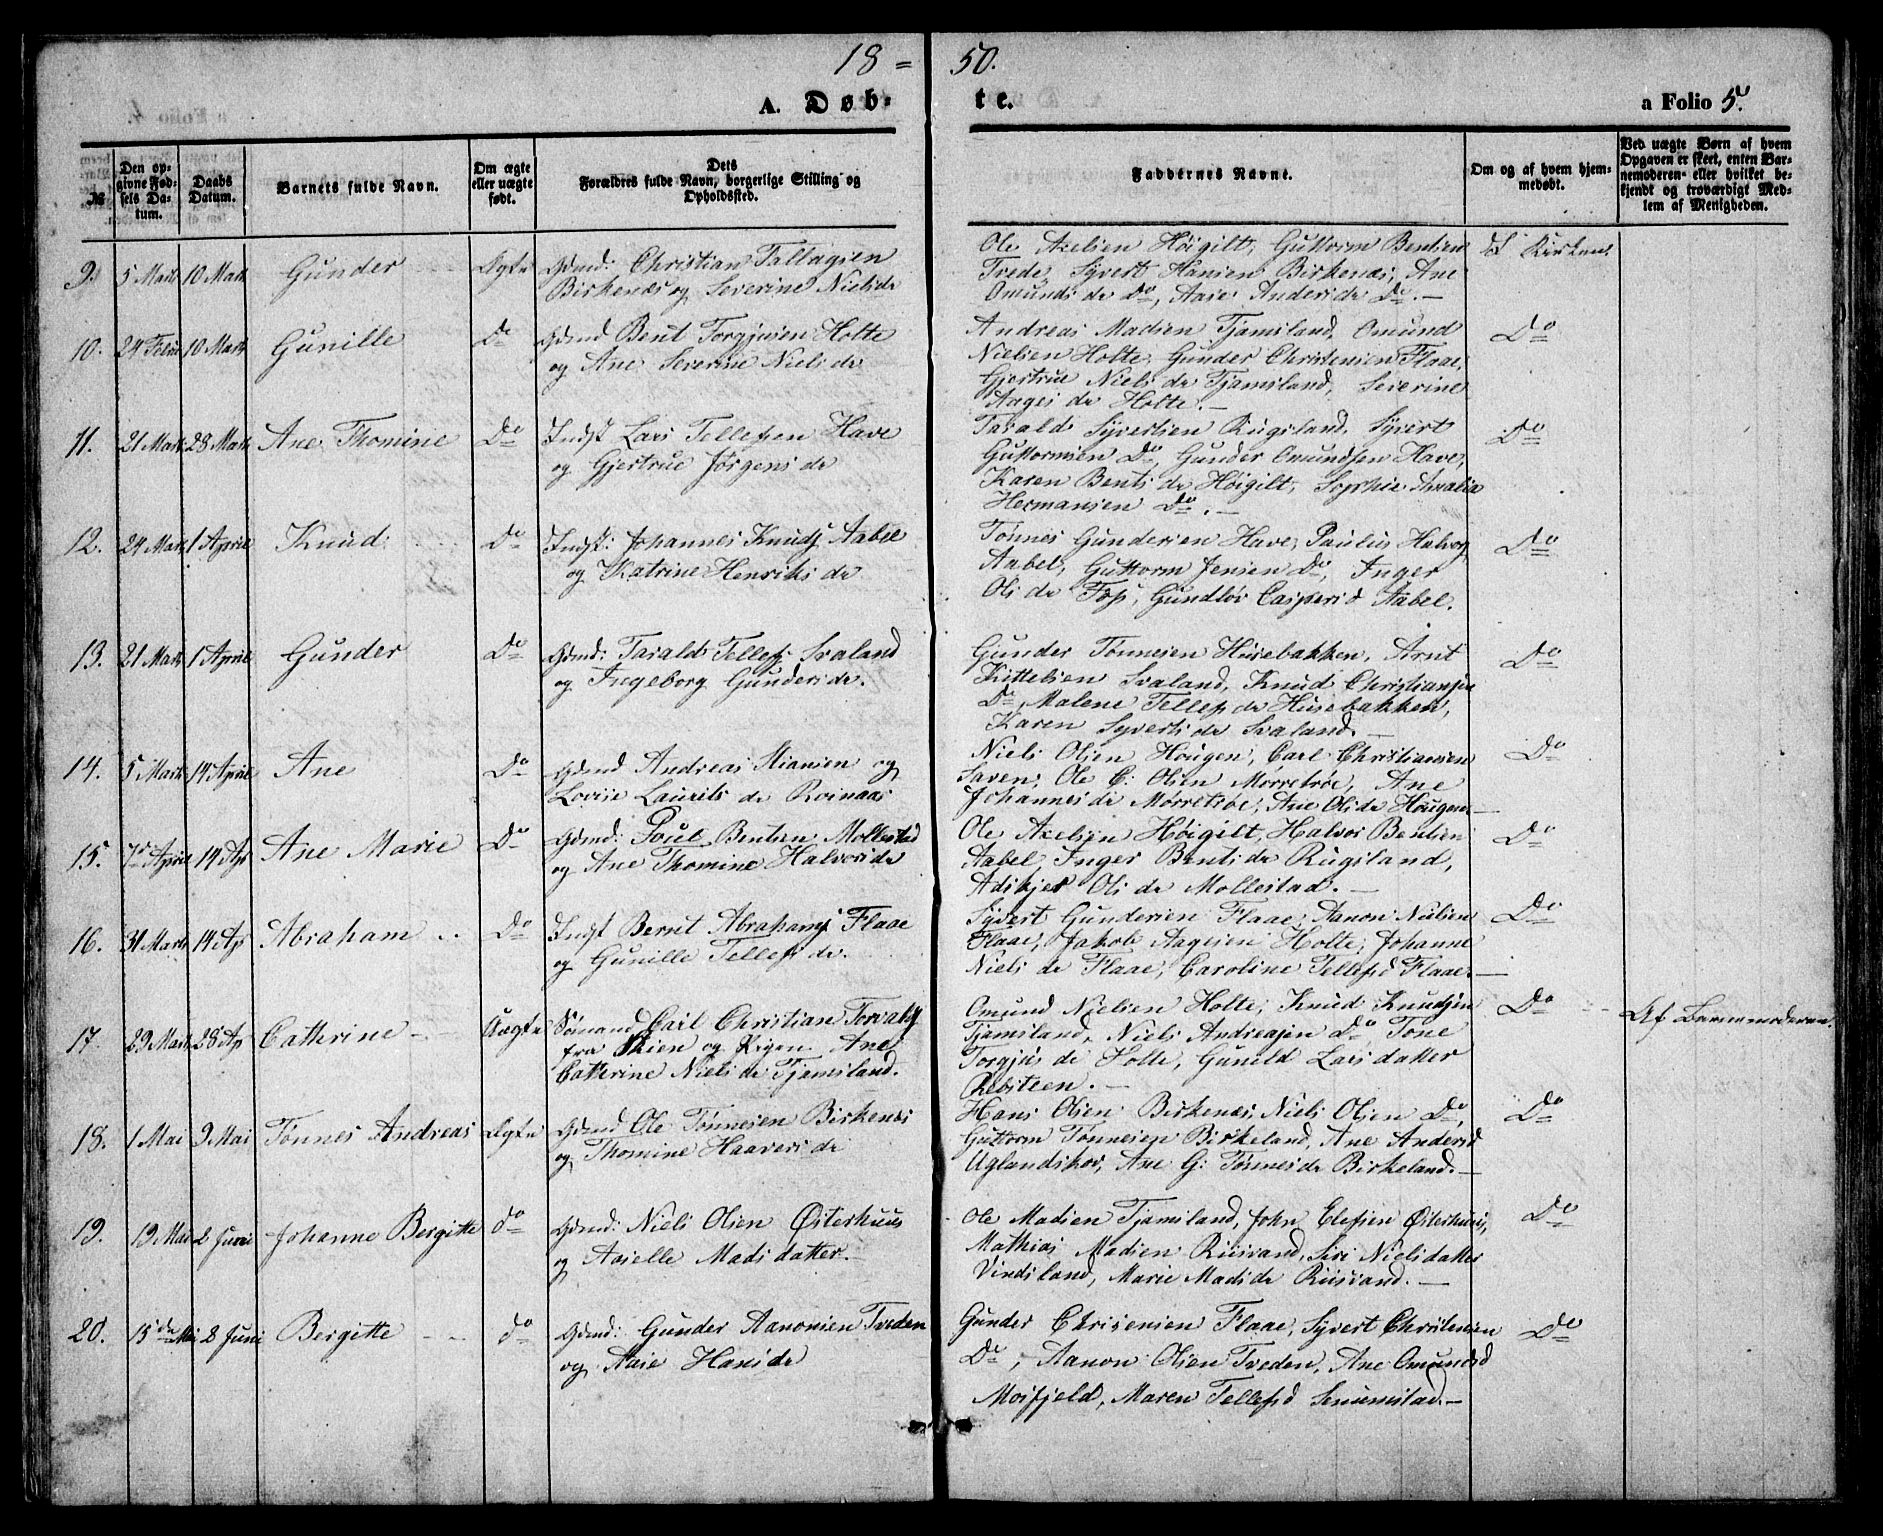 18 = 50.
A. Døb- te. a Folio 5.
№
Den op-
givne Fød-
sels Da-
tum.
Daabs
Datum.
Barnets fulde Navn.
Om ægte
eller uægte
født.
Dets
Forældres fulde Navn, borgerlige Stilling og
Opholdssted.
Faddernes Navne.
Om og af hvem hjem-
medøbt.
Ved uægte Børn af hvem
Opgaven er skeet, enten Bar-
nemoderen eller hvilket be-
kjendt og troværdigt Med-
lem af Menigheden.
9. 5 Marts 10 Marts Gunder Ægte Gdmd: Christian Tallagsen
Birkenæs og Severine Nielsdr
Ole Axelsen Høigilt, Guttorm Bentsen
Tvede, Syvert Hansen Birkenæs, Ane
Omunds dr Do, Aase Anders dr Do. —
i Kirken.
10. 24 Febr 10 Marts Gunille Do Gdmd Bent Torgjusen Holte
og Ane Severine Niels dr
Andreas Madsen Tjamsland, Omund
Nielsen Holte, Gunder Christensen Flaae,
Gjertrue Niels dr Tjamsland, Severine
Aages dr Holte. —
Do
11. 21 Marts 28 Marts Ane Thomine Do Indst Lars Tellefsen Have
og Gjertrue Jørgens dr
Tarald Syvertsen Rugsland, Syvert
Guttormsen Do, Gunder Omundsen Have,
Karen Bents dr Høigilt, Sophie Amalia
Hermansen Do. —
Do
12. 24 Marts 1 April Knud Do Indst: Johannes Knuds Aabel
og Katrine Henriks dr
Tønnes Gundersen Have, Paulus Halvors
Aabel, Guttorm Jensen Do, Inger
Ols dr Foss, Gundlov Caspersd Aabel.
Do
13. 21 Marts 1 April Gunder Do Gdmd: Tarald Tellefs Svaland
og Ingeborg Gunders dr.
Gunder Tønnesen Husebakken, Arnt
Kittelsen Svaland, Knud Christiansen
Do, Malene Tellefs dr Husebakken,
Karen Syverts dr Svaland. —
Do
14. 5 Marts 14 April Ane Do Gdmd Andreas Stiansen og
Lovise Laurits dr Roinaas
Niels Olsen Hougen, Carl Christiansen
Saven, Ole C: Olsen Mørretrøe, Ane
Johannes dr Mørretrøe, Ane Olsdr Hougen —
Do
15. 7de April 14 Ap Ane Marie Do Gdmd: Poul Bentsen Mollestad
og Ane Thomine Halvorsdr
Ole Axelsen Høigilt, Halvor Bentsen
Aabel, Inger Bents dr Rugsland,
Adskjer Ols dr Mollestad. —
Do
16. 31 Marts 14 Ap Abraham Do Indst Bernt Abrahams Flaae
og Gunille Tellefs dr.
Syvert Gundersen Flaae, Aanon Nielsen
Flaae, Jakob Aagesen Holte, Johanne
Niels dr Flaae, Caroline Tellefsd Flaae. —
Do
17. 29 Marts 28 Ap Cathrine — Uægte Sømand Carl Christian Torvals
fra Skien og Pigen Ane
Catherine Niels dr Tjamsland.
Omund Nielsen Holte, Knud Knudsen
Tjamsland, Niels Andreasen Do, Tone
Torgjus dr Holte, Guneld Lars datter
Rebsteen. —
Do
Af Barnemoderen.
18. 1 Mai 9 Mai Tønnes Andreas Ægte Gdmd Ole Tønnesen Birkenæs
og Thomine Haavers dr
Hans Olsen Birkenæs, Niels Olsen Do,
Guttorm Tønnesen Birkeland, Ane Andersd
Uglandskov, Ane G: Tønnesdr Birkeland. —
Do
19. 19 Mai 2 Juni Johanne Bergitte do Gdmd: Niels Olsen Østerhuus
og Aaselle Mads datter. —
Ole Madsen Tjamsland, John Elefsen Østerhuus,
Mathias Madsen Riisvand, Siri Nielsdatter
Vindsland, Marie Mads dr Riisvand. —
Do
20. 15de Mai 2 Juni Bergitte do Gdmd: Gunder Aanonsen Tveden
og Aase Hansdr
Gunder Chrisensen Flaae, Syvert Christensen
Do, Aanon Olsen Tveden, Ane Omundsd
Mosfjeld, Maren Tellefsd Senumstad. —
Do